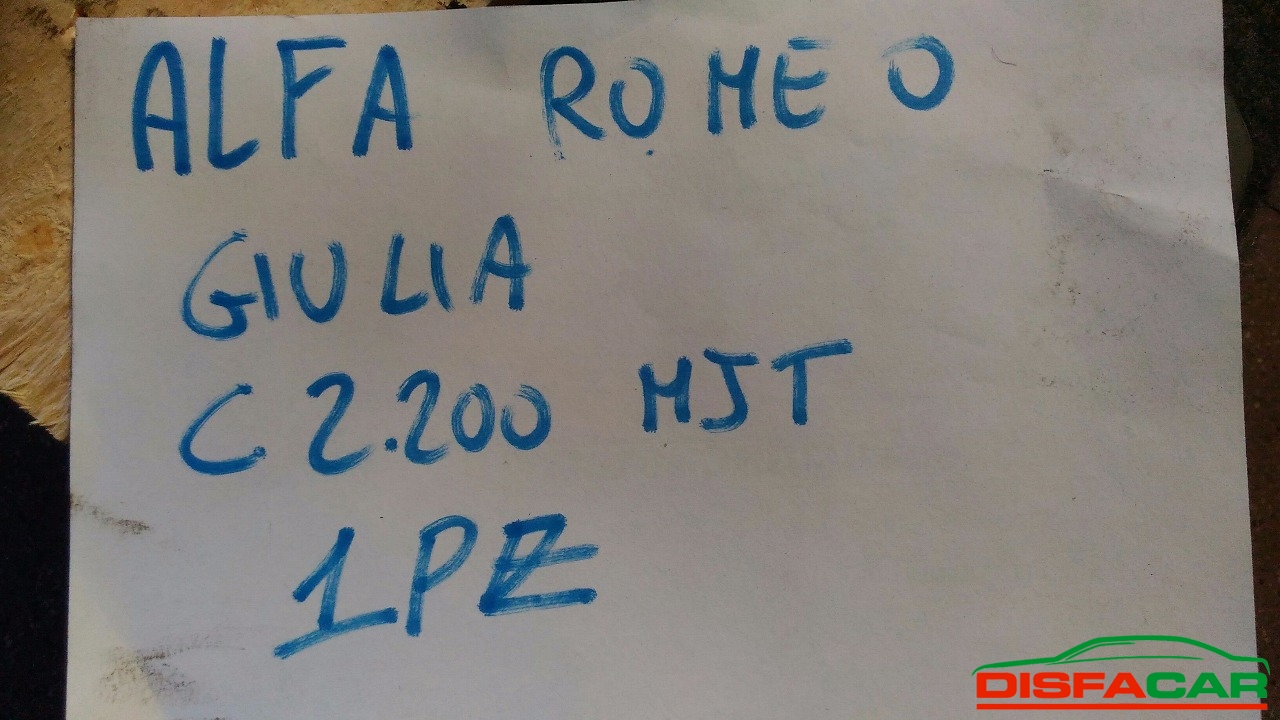 ALFA ROMEO
GIULIA
C 2.200 MJT
1PZ
DISFACAR